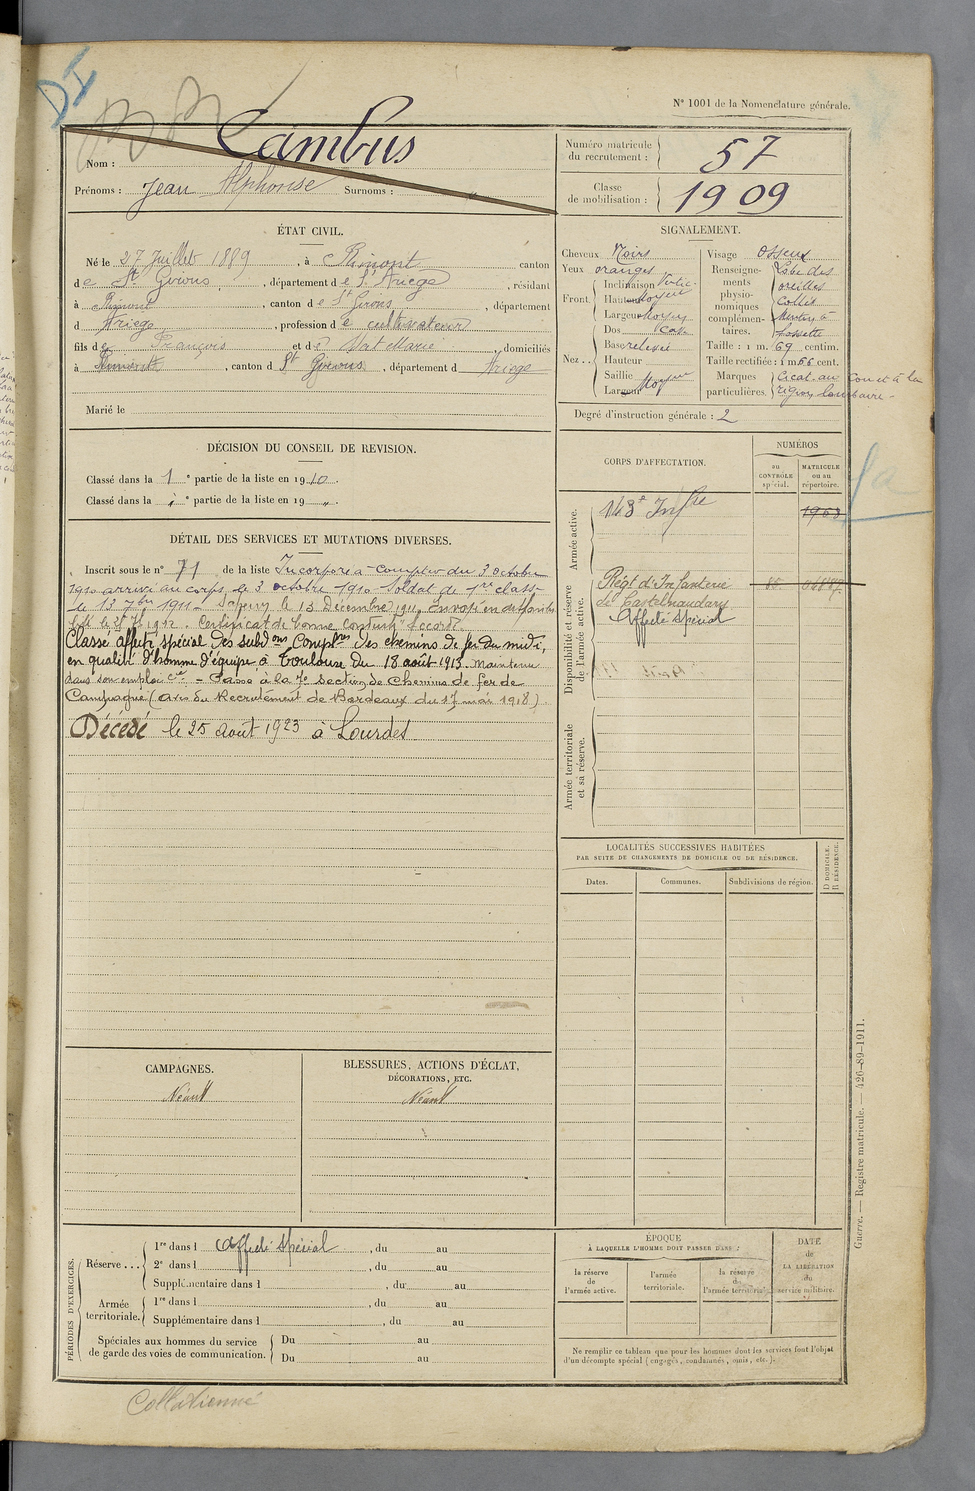 DI
N° 1001 de la Nomenclature générale.
Nom : Cambus
Prénoms : Jean Alphonse Surnoms : „
Numéro matricule du recrutement : 57
Classe de mobilisation : 1909
ÉTAT CIVIL.
Né le 27 Juillet 1889, à Rimont canton
de St Girons, département de l'Ariège, résidant
à Rimont, canton de St Girons, département
d Ariège, profession de cultivateur
fils de François et de Marie domiciliés
à Rimont, canton d St Girons, département d Ariège
Marié le
SIGNALEMENT.
Cheveux Noirs
Yeux oranges
Front Inclinaison Vertic.
Hauteur Moyen
Largeur Moyen
Nez Dos
Base relevée
Hauteur
Saillie
Largeur Moyen
Visage Osseux
Renseignements physionomiques complémentaires. Lobe des
oreilles
Collés
Menton à
fossette
Taille : 1 m. 69 centim.
Taille rectifiée : 1 m 66 cent.
Marques particulières. Cicat. au Cou et à la
région lombaire.
Degré d'instruction générale : 2
DÉCISION DU CONSEIL DE REVISION.
Classé dans la 1e partie de la liste en 1910.
Classé dans la e partie de la liste en 19 „ .
DÉTAIL DES SERVICES ET MUTATIONS DIVERSES.
Inscrit sous le n° 71 de la liste Incorporé à compter du 3 octobre
1910 arrivé au corps le 3 octobre 1910 Soldat de 1re classe
le 13 7bre 1911 le 13 Décembre 1911. Envoyé en disponibi
lité le 1912. Certificat de bonne conduite accordé.
Classé affecté spécial des subdons Compres des chemins de fer du midi,
en qualité d'homme d'équipe à Toulouse du 18 août 1913. Maintenu
dans son emploi - Passé à la 7e Section de Chemins de fer de
Campagne (avis du Recrutement de Bordeaux du 17 mai 1918).
Décédé le 25 août 1923 à Lourdes
CORPS D'AFFECTATION.
NUMÉROS
au CONTRÔLE spécial.
MATRICULE ou au répertoire.
Armée active.
143e Infrie
Disponibilité et réserve de l'armée active.
Régt d'Infanterie
de Castelnaudary
Affecté Spécial
Armée territoriale et sa réserve.
LOCALITÉS SUCCESSIVES HABITÉES
PAR SUITE DE CHANGEMENTS DE DOMICILE OU DE RÉSIDENCE.
Dates.
Communes.
Subdivisions de région.
D DOMICILE.
R RÉSIDENCE.
CAMPAGNES.
Néant
BLESSURES, ACTIONS D'ÉCLAT,
DÉCORATIONS, ETC.
Néant
PÉRIODES D'EXERCICES.
Réserve ... 1re dans l Affecté Spécial, du au
2e dans l , du au
Supplémentaire dans l , du au
Armée territoriale. 1re dans l , du au
Supplémentaire dans l , du au
Spéciales aux hommes du service
de garde des voies de communication.
Du au
Du au
ÉPOQUE
À LAQUELLE L'HOMME DOIT PASSER DANS :
la réserve de l'armée active.
l'armée territoriale.
la réserve de l'armée territoriale.
DATE de LA LIBÉRATION du service militaire.
Ne remplir ce tableau que pour les hommes dont les services font l'objet
d'un décompte spécial (engagés, condamnés, omis, etc.).
Guerre. — Registre matricule. — 426-89-1911.
Collationné